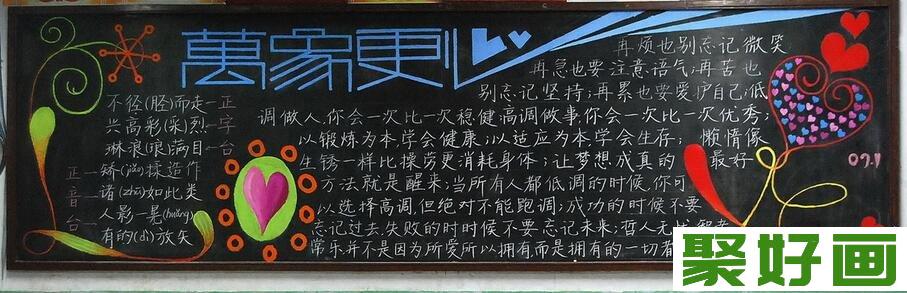 萬象更
正字台
不径(胫)而走
兴高彩(采)烈
淋浪(琅)满目
正音台
矫(jiǎo)揉造作
诸(zhū)如此类
人影一晃(huǎng)
有的(dì)放矢
再烦也别忘记微笑
再急也要注意语气;再苦也
别忘记坚持;再累也要爱护自己;低
调做人,你会一次比一次稳健;高调做事,你会一次比一次优秀;
以锻炼为本,学会健康;以适应为本,学会生存;懒惰像
生锈一样比操劳更消耗身体;让梦想成真的最好
方法就是醒来;当所有人都低调的时候,你可
以选择高调,但绝对不能跑调;成功的时候不要
忘记过去,失败的时时候不要忘记未来;哲人无忧,智者
常乐并不是因为所爱所以拥有,而是拥有的一切
09.1
聚好画